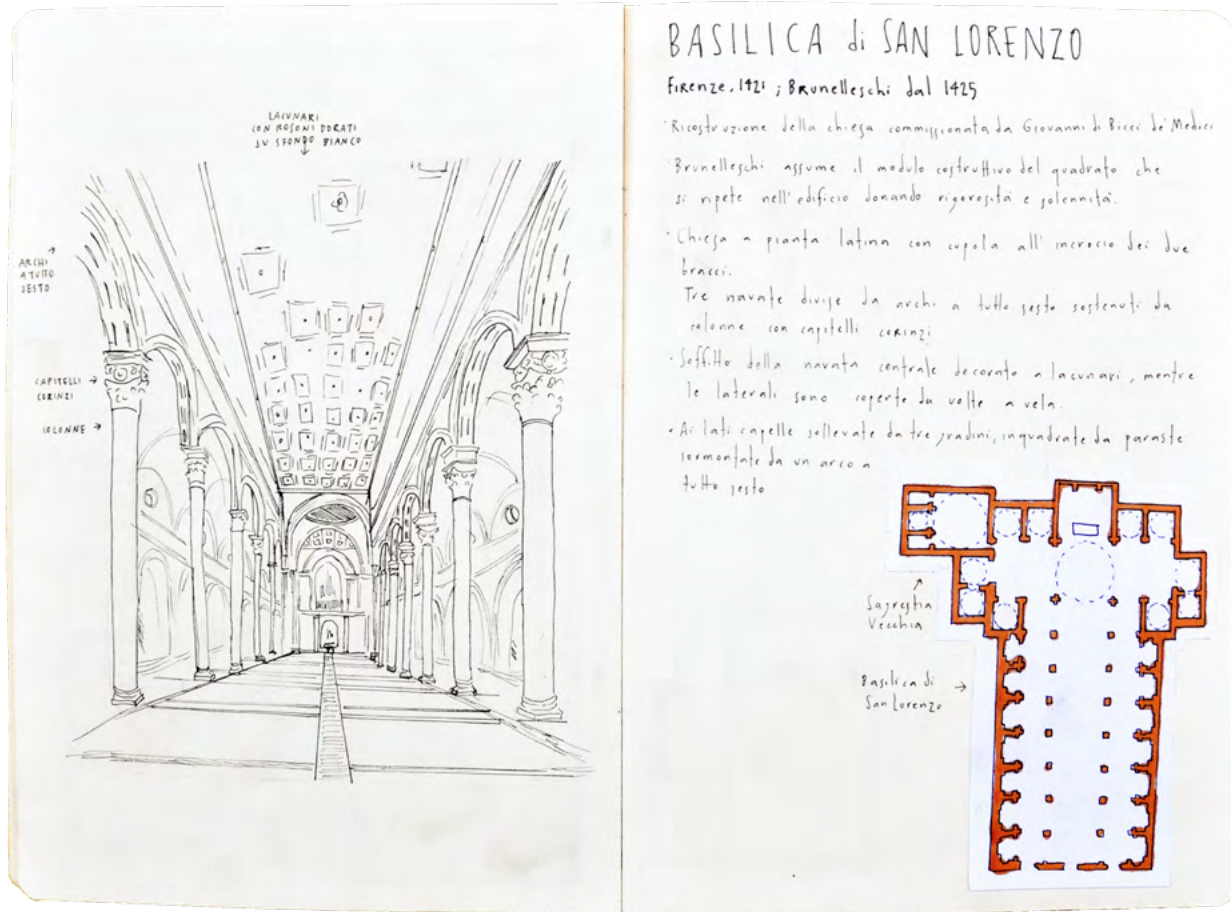 LACUNARI
CON ROSONI DORATI
SU SFONDO BIANCO
ARCHI
A TUTTO
SESTO
CAPITELLI
CORINZI
COLONNE
BASILICA di SAN LORENZO
Firenze, 1421 ; Brunelleschi dal 1425
· Ricostruzione della chiesa commissionata da Giovanni di Bicci de' Medici
· Brunelleschi assume il modulo costruttivo del quadrato che
si ripete nell' edificio donando rigorosità e solennità.
· Chiesa a pianta latina con cupola all' incrocio dei due
bracci.
Tre navate divise da archi a tutto sesto sostenuti da
colonne con capitelli corinzi
· Soffitto della navata centrale decorato a lacunari, mentre
le laterali sono coperte da volte a vela.
· Ai lati capelle sollevate da tre gradini, inquadrate da paraste
sormontate da un arco a
tutto sesto
Sagrestia
Vecchia
Basilica di
San Lorenzo